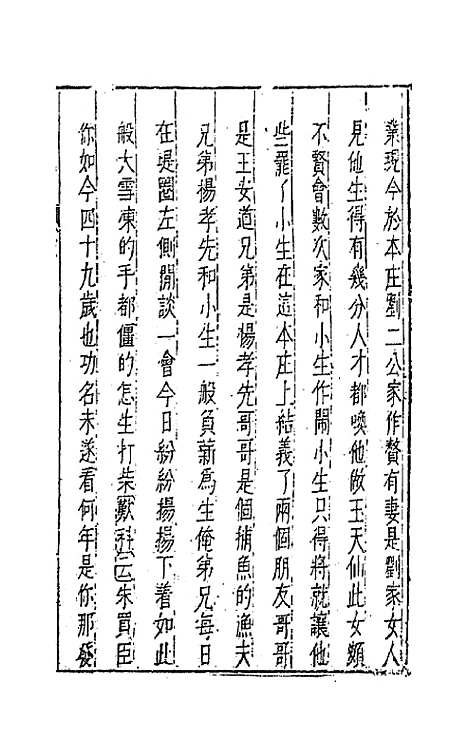 業現今於本庄劉二公家作贅有妻是劉家女人
見他生得有幾分人才都喚他做玉天仙此女頗
不賢會數次家和小生作鬧小生只得將就讓他
些罷了小生在這本庄上結義了兩個朋友哥哥
是王安道兄弟是楊孝先哥哥是個捕魚的漁夫
兄弟楊孝先和小生一般負薪為生俺弟兄每日
在堤圈左側閒談一會今日紛紛揚揚下着如此
般大雪凍的手都僵的怎生打柴歎科云朱買臣
你如今四十九歲也功名未遂看何年是你那發